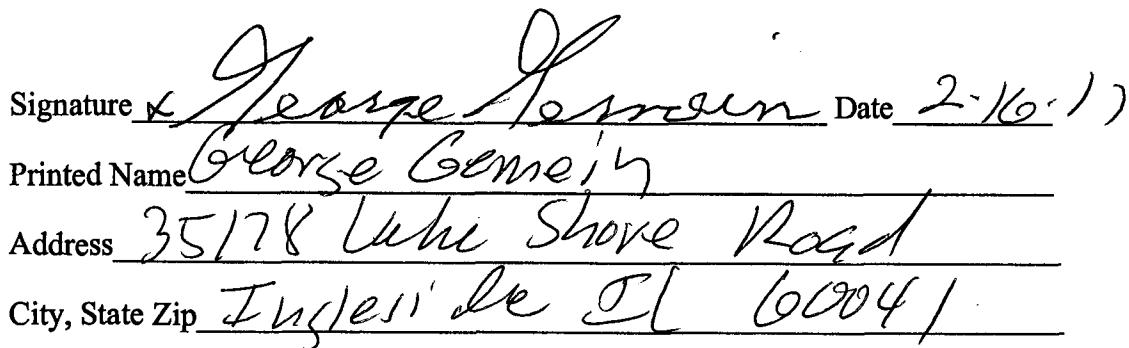 Signature x George Germain Date 2-16-17
Printed Name George Germein
Address 35178 Lake Shore Road
City, State Zip Ingleside IL 60041